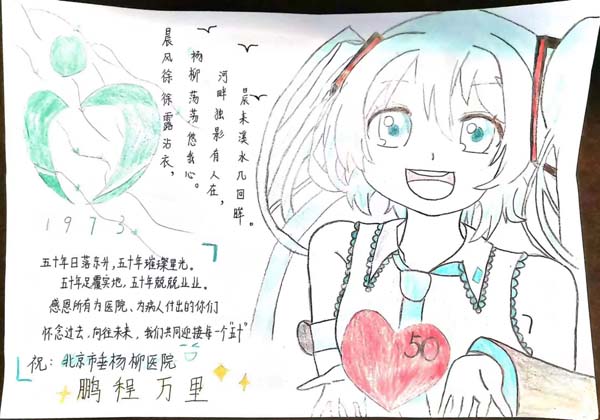 晨风徐徐露沾衣，
杨柳荡荡悠我心。
河畔独影有人在，
尿未溪水几回眸。
1973
五十年日落东升，五十年璀璨星光。
五十年足履实地，五十年兢兢业业。
感恩所有为医院、为病人付出的你们
怀念过去，向往未来，我们共同迎接每一个"五十"
祝：北京市垂杨柳医院
鹏程万里
50